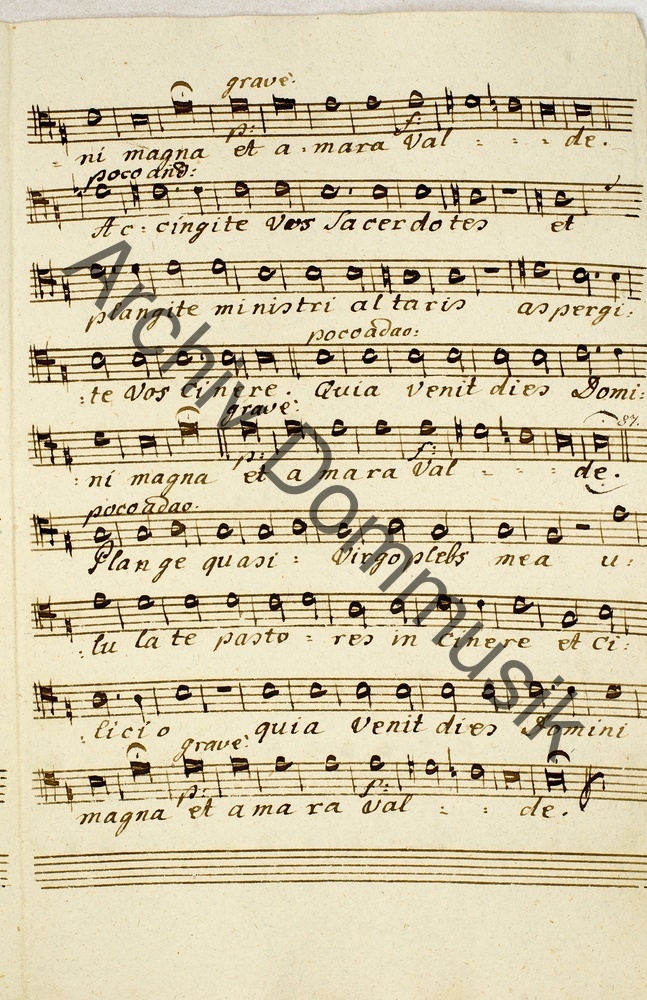 grave:
p: f:
ni magna et a mara Val - - - de.
poco and:
Ac: cingite Vos Sacerdotes et
plangite ministri altaris aspergi:
poco adao:
:te Vos Cinere. Quia venit dies Domi:
grave:
p: f: 87.
:ni magna et amara Val - - de.
poco adao:
Plange quasi: Virgo plebs mea u:
:lu late pasto: res in cinere et ci:
:licio quia Venit dies Domini
grave:
p: f:
magna et amara Val - : de.
Archiv Dommusik